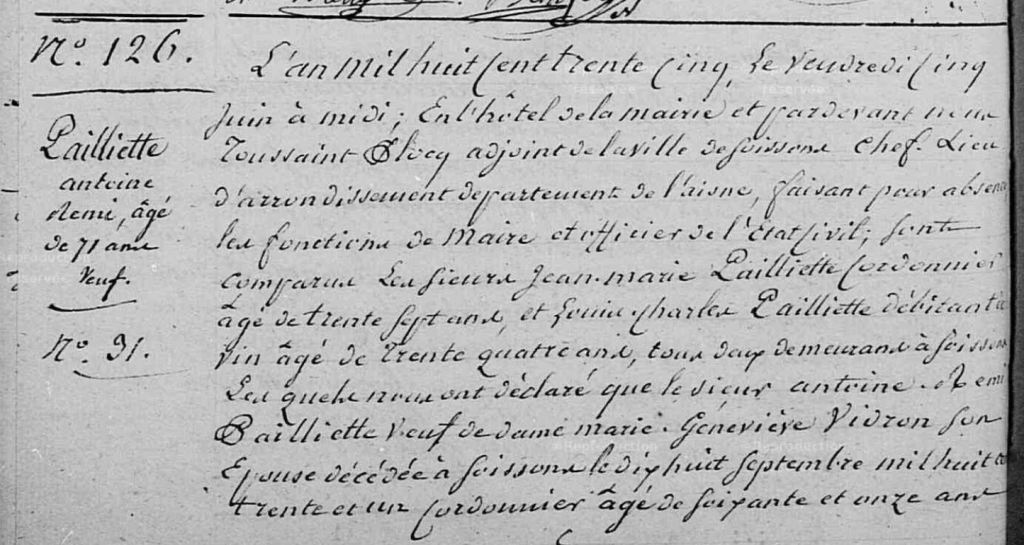 N.° 126.
Pailliette
antoine
Remi, âgé
de 71 ans
Veuf.
N.° 31.
L'an Mil huit Cent trente Cinq, Le Vendredi Cinq
Juin à midi; En l'hôtel de la mairie et pardevant nous
Toussaint Blocq adjoint de la ville de Soissons Chef. Lieu
d'arrondissement departement de l'aisne, faisant pour absence
les fonctions de Maire et officier de l'Etat Civil; sont
comparus Les Sieurs Jean-marie Pailliette Cordonnier
âgé de trente Sept ans, et Louis Charles Pailliette débitant de
vin âgé de trente quatre ans, tous deux demeurans à Soissons
Les quels nous ont déclaré que le sieur antoine. Remi
Pailliette Veuf de dame marie. Géneviève Vidron son
Epouse décédée à Soissons le dix huit Septembre mil huit
trente et un Cordonnier âgé de soixante et onze ans